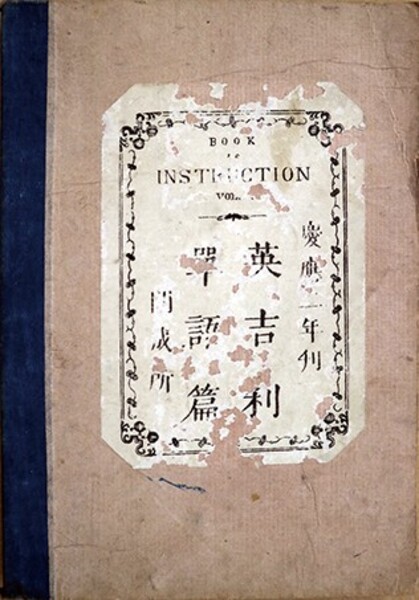 BOOK
INSTRUCTION
VOL.
慶應二年刊
英吉利
單語篇
開成所